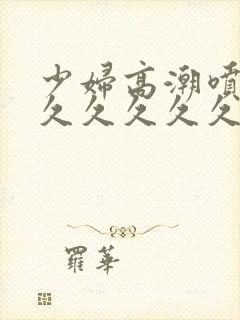 少婦高潮噴
久久久久久
羅華